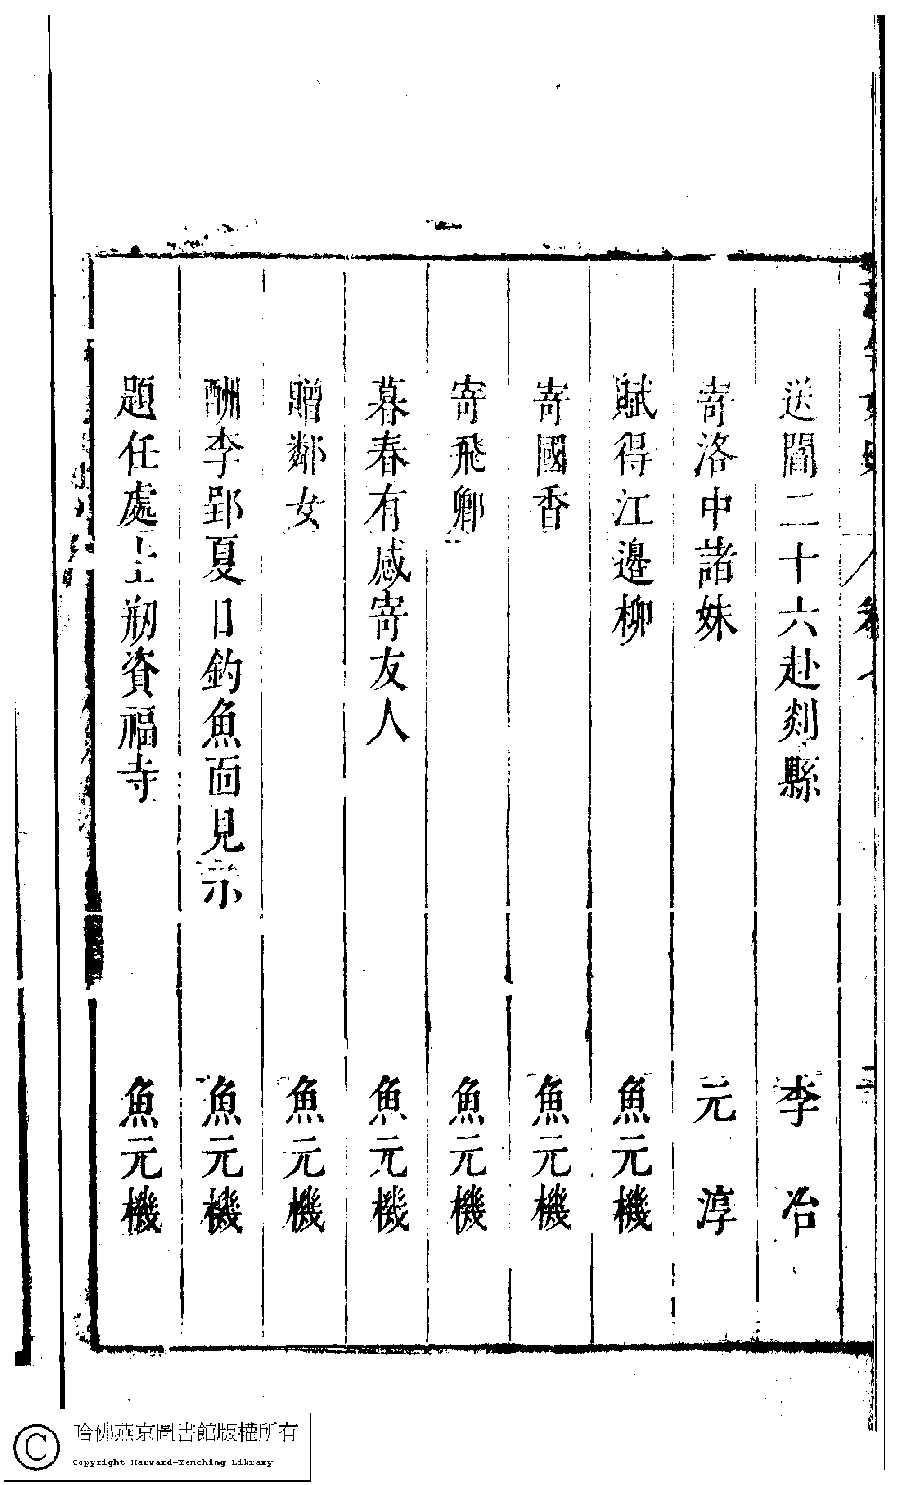 送閻二十六赴剡縣 李冶
寄洛中諸妹 元淳
賦得江邊柳 魚元機
寄國香 魚元機
寄飛卿 魚元機
暮春有感寄友人 魚元機
贈鄰女 魚元機
酬李郢夏日釣魚面見示 魚元機
題任處士剏資福寺 魚元機
哈佛燕京圖書館版權所有
Copyright Harvard-Yenching Library